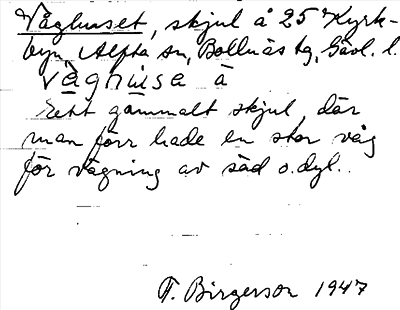 Våghuset, skjul å 25 Kyrk-
byn, Alfta sn, Bollnäs tg, Gävl. l.
våghusä å
Ett gammalt skjul, där
man förr hade en stor våg
för vägning av säd o.dyl.
F. Birgerson 1947